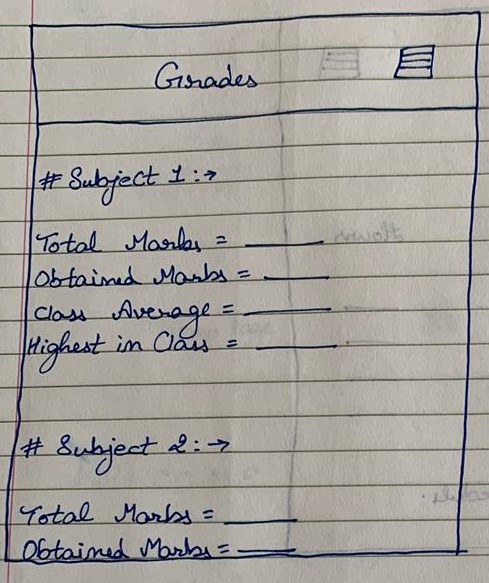 Grades
# Subject 1 :→
Total Marks = ______
Obtained Marks = ______
Class Average = ______
Highest in Class = ______
# Subject 2 :→
Total Marks = ______
Obtained Marks = ______